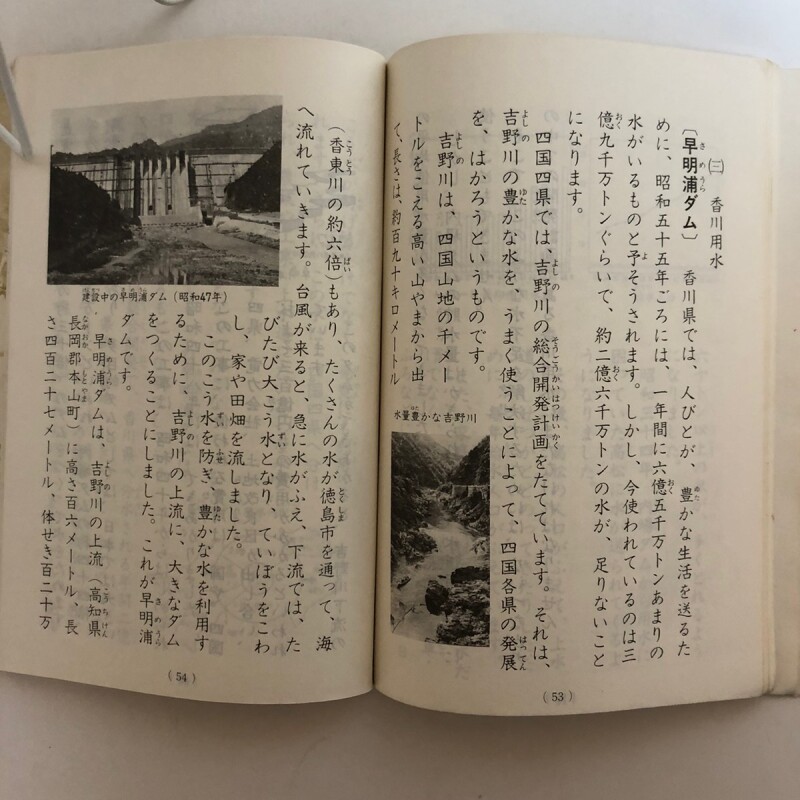 ㈡ 香川用水
〔早明浦ダム〕 香川県では、人びとが、豊かな生活を送るた
めに、昭和五十五年ごろには、一年間に六億五千万トンあまりの
水がいるものと予そうされます。しかし、今使われているのは三
億九千万トンぐらいで、約二億六千万トンの水が、足りないこと
になります。
四国四県では、吉野川の総合開発計画をたてています。それは、
吉野川の豊かな水を、うまく使うことによって、四国各県の発展
を、はかろうというものです。
吉野川は、四国山地の千メー
トルをこえる高い山やまから出
て、長さは、約百九十キロメートル
水量豊かな吉野川
(53)
(香東川の約六倍)もあり、たくさんの水が徳島市を通って、海
へ流れていきます。台風が来ると、急に水がふえ、下流では、た
びたび大こう水となり、ていぼうをこわ
し、家や田畑を流しました。
このこう水を防ぎ、豊かな水を利用す
るために、吉野川の上流に、大きなダム
をつくることにしました。これが早明浦
ダムです。
早明浦ダムは、吉野川の上流(高知県
長岡郡本山町)に高さ百六メートル、長
さ四百二十七メートル、体せき百二十万
建設中の早明浦ダム(昭和47年)
(54)